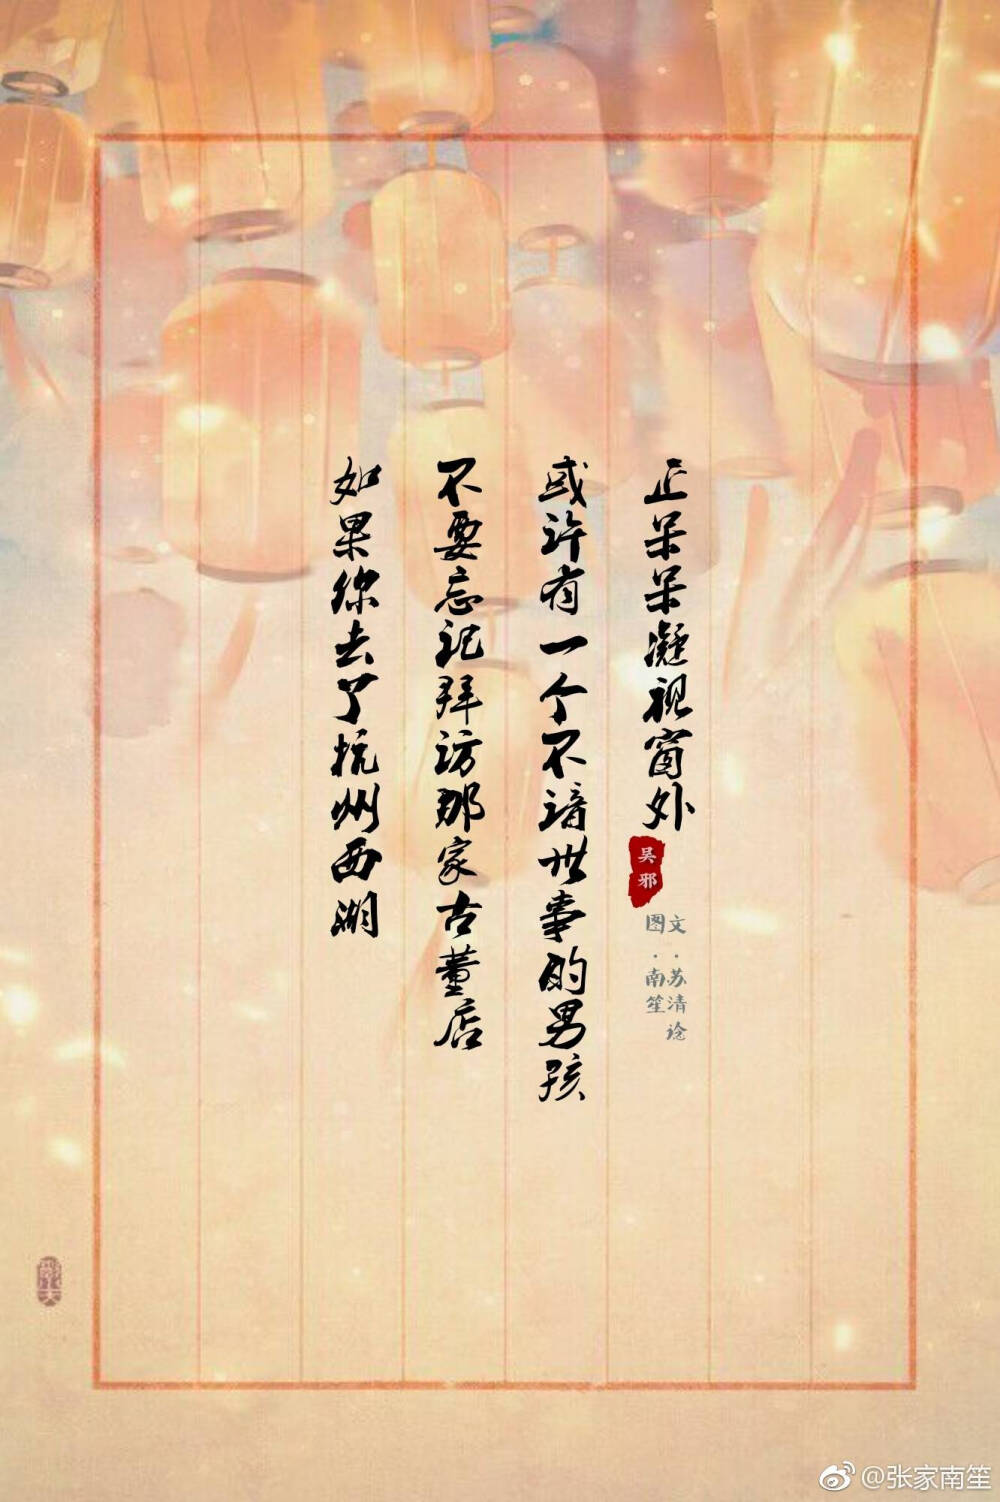 如果你去了杭州西湖
不要忘记拜访那家古董店
或许有一个不谙世事的男孩
正呆呆凝视窗外
吴邪
文·苏清谂
图·南笙
@张家南笙